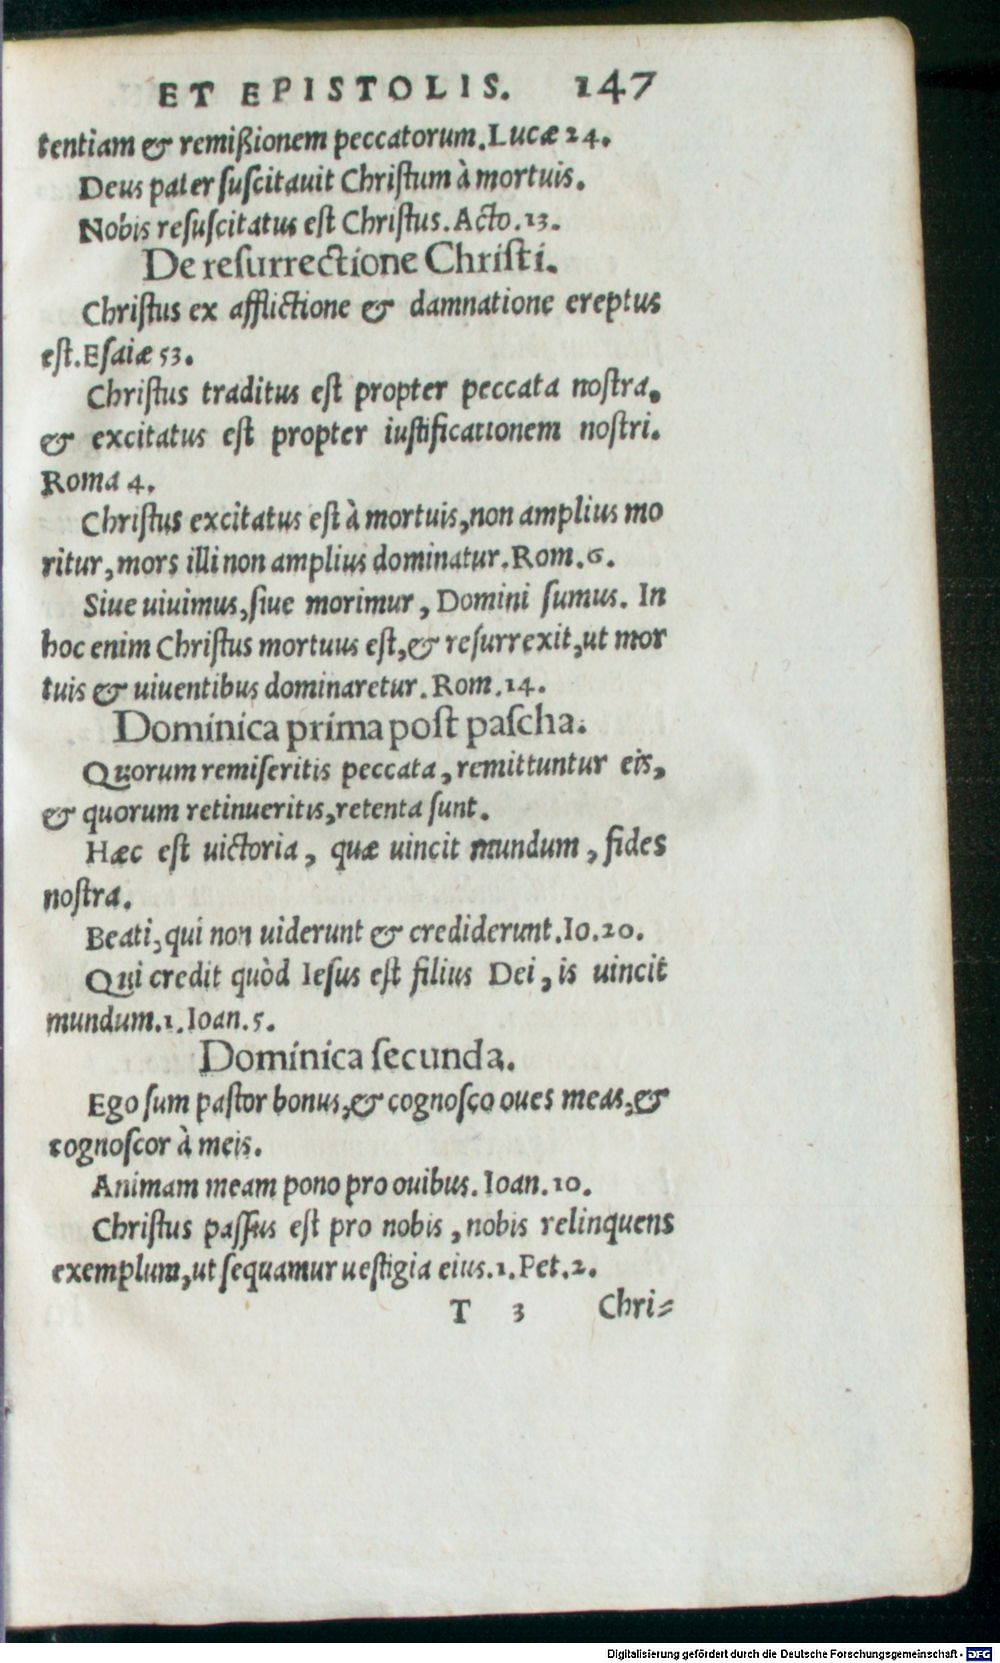 ET EPISTOLIS. 147
tentiam & remißionem peccatorum. Lucæ 24.
Deus pater suscitauit Christum à mortuis.
Nobis resuscitatus est Christus. Acto. 13.
De resurrectione Christi.
Christus ex afflictione & damnatione ereptus
est. Esaiæ 53.
Christus traditus est propter peccata nostra.
& excitatus est propter iustificationem nostri.
Roma 4.
Christus excitatus est à mortuis, non amplius mo
ritur, mors illi non amplius dominatur. Rom. 6.
Siue uiuimus, siue morimur, Domini sumus. In
hoc enim Christus mortuus est, & resurrexit, ut mor
tuis & uiuentibus dominaretur. Rom. 14.
Dominica prima post pascha.
Quorum remiseritis peccata, remittuntur eis,
& quorum retinueritis, retenta sunt.
Hæc est uictoria, quæ uincit mundum, fides
nostra.
Beati, qui non uiderunt & crediderunt. Io. 20.
Qui credit quòd Iesus est filius Dei, is uincit
mundum. 1. Ioan. 5.
Dominica secunda.
Ego sum pastor bonus, & cognosco oues meas, &
cognoscor à meis.
Animam meam pono pro ouibus. Ioan. 10.
Christus passus est pro nobis, nobis relinquens
exemplum, ut sequamur uestigia eius. 1. Pet. 2.
T 3 Chri=
Digitalisierung gefördert durch die Deutsche Forschungsgemeinschaft - DFG